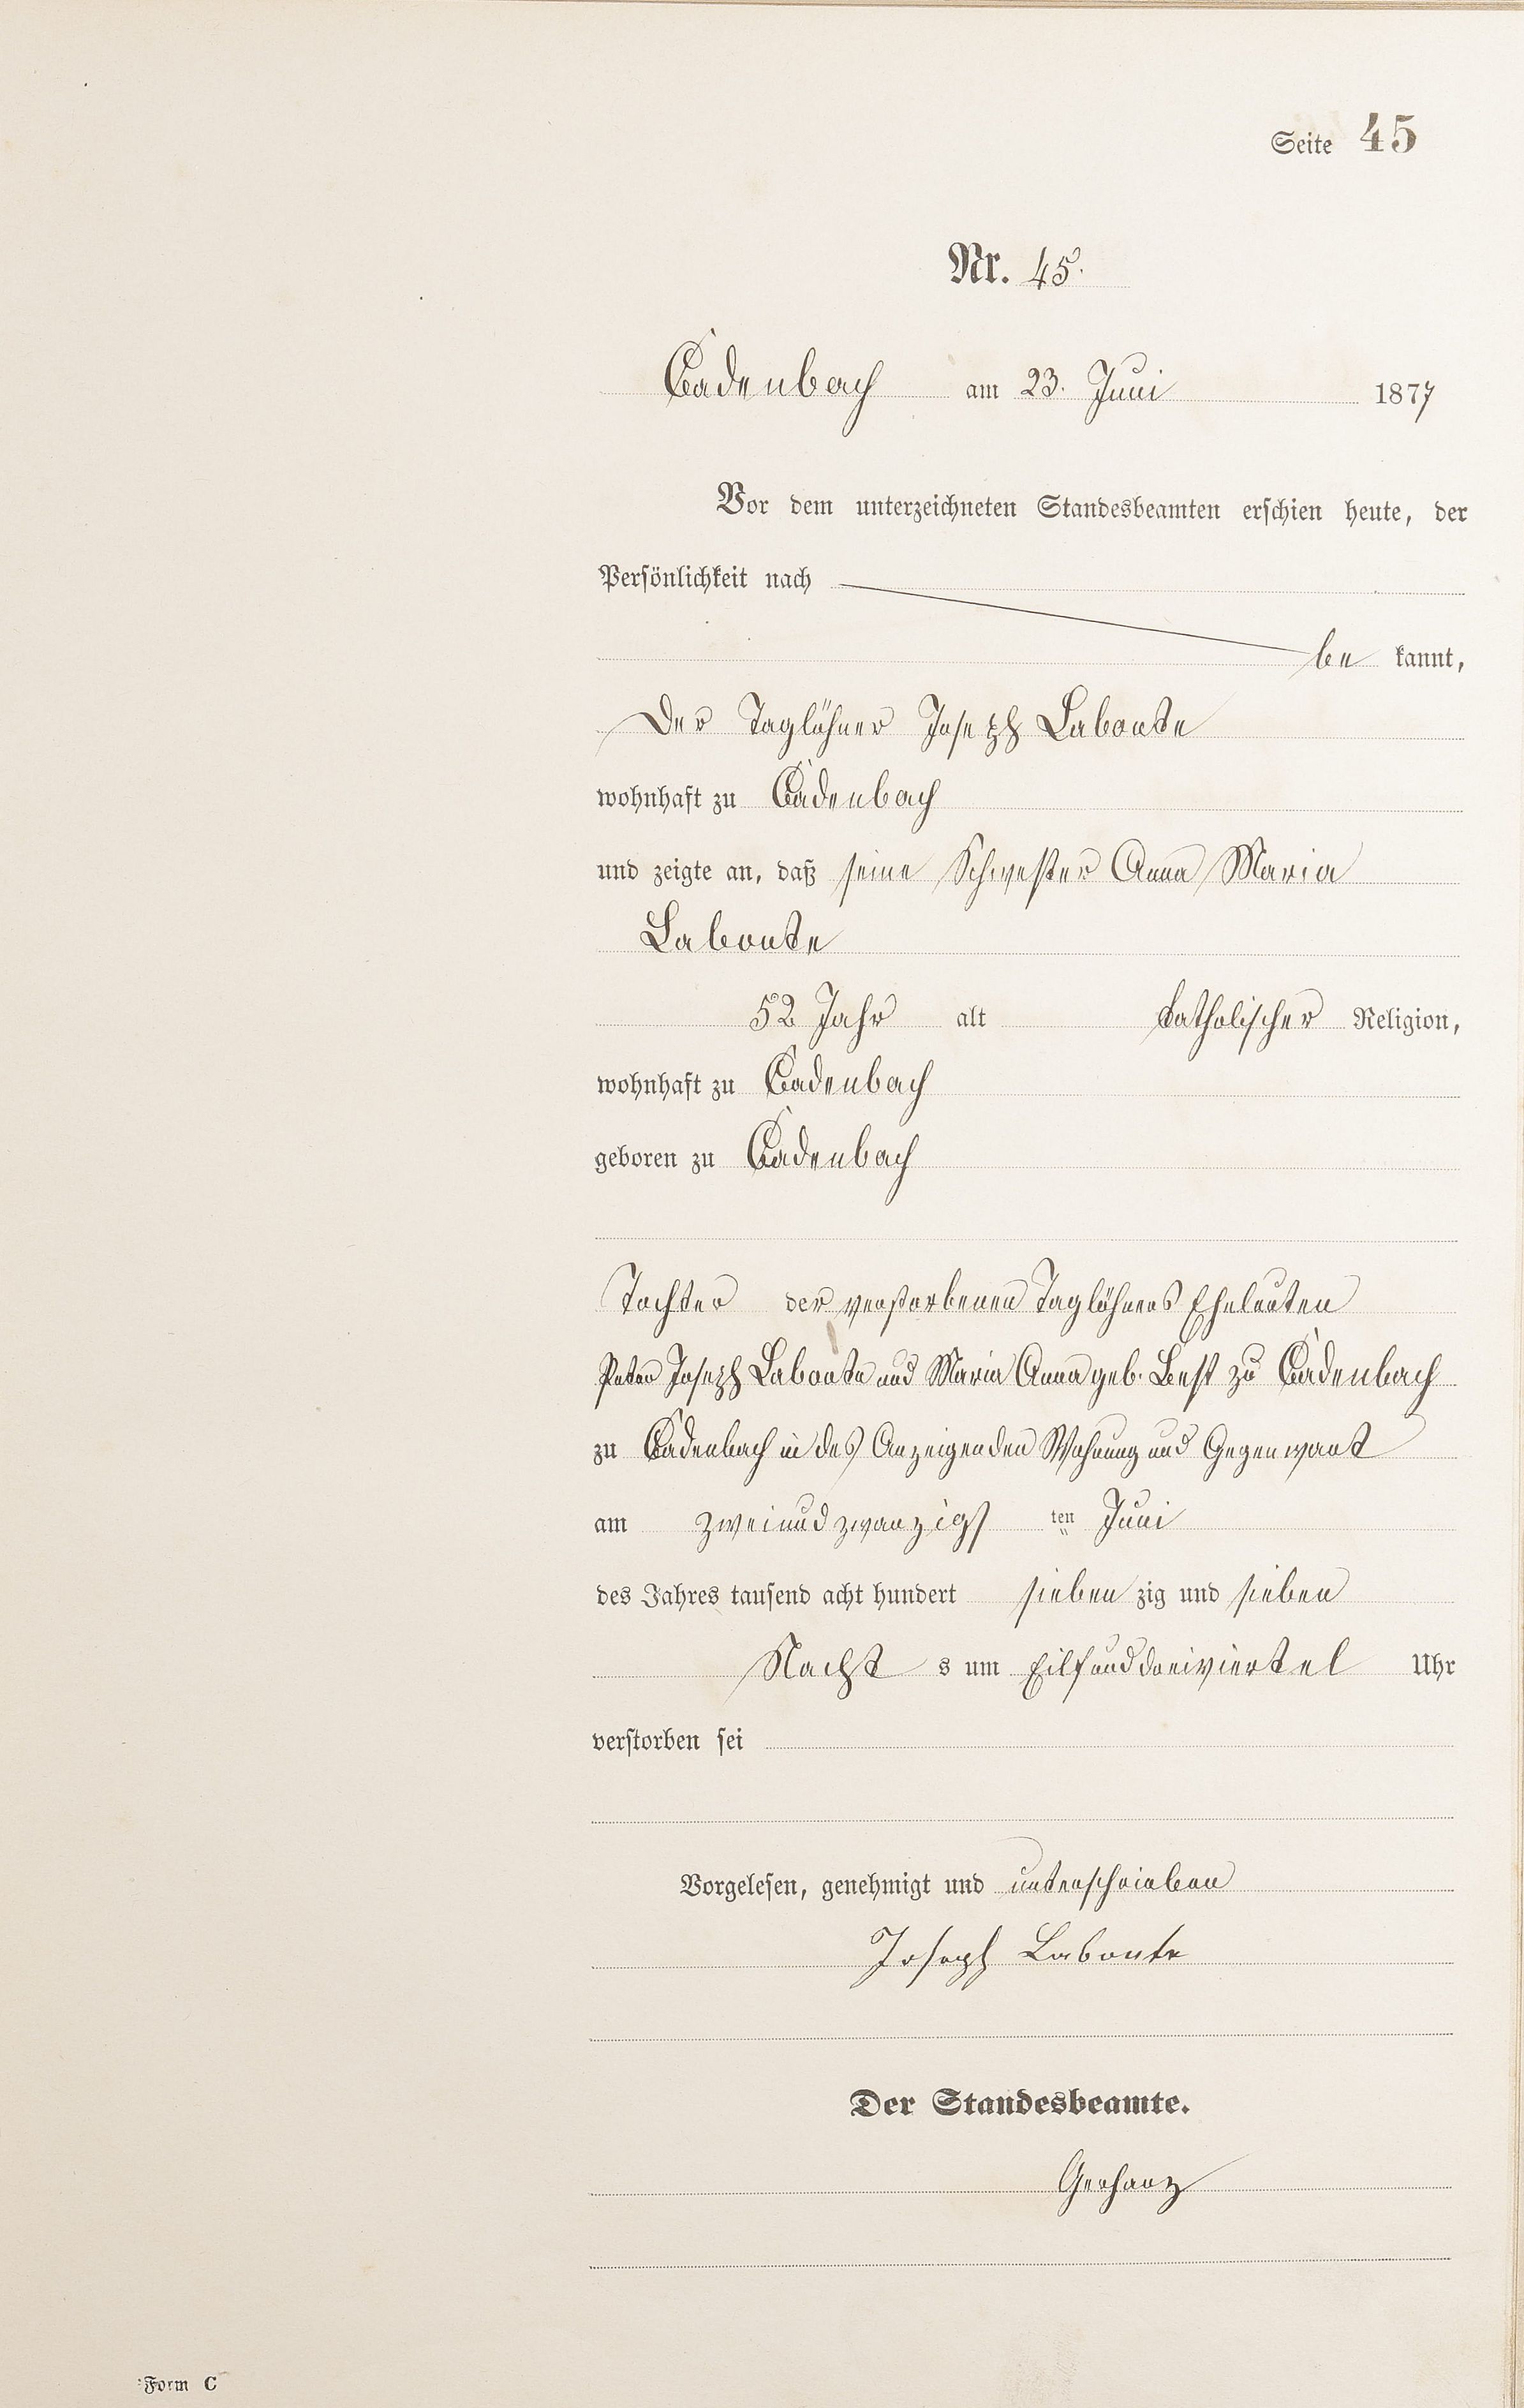 Seite 45
Nr. 45.
Cadenbach am 23. Juni 1877
Vor dem unterzeichneten Standesbeamten erschien heute, der
Persönlichkeit nach
be kannt,
Der Taglöhner Joseph Labonte
wohnhaft zu Cadenbach
und zeigte an, daß seine Schwester Anna Maria
Labonte
52 Jahr alt katholischer Religion,
wohnhaft zu Cadenbach
geboren zu Cadenbach
Tochter der verstorbenen Taglöhners Eheleuten
Peter Joseph Labonte und Maria Anna geb. Best zu Cadenbach
zu Cadenbach in des Anzeigenden Wohnung und Gegenwart
am zweiundzwanzigs ten Juni
des Jahres tausend acht hundert sieben zig und sieben
Nacht s um Eilfunddreiviertel Uhr
verstorben sei
Vorgelesen, genehmigt und unterschrieben
Joseph Labonte
Der Standesbeamte.
Gerharz
Form C